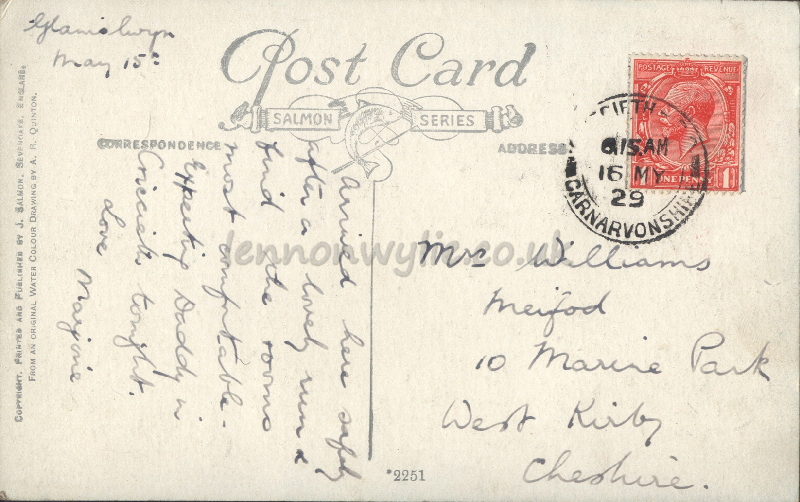 Glanislwyn
May 15th
Post Card
SALMON SERIES
CORRESPONDENCE
ADDRESS
Arrived here safely
after a lovely run &
find the rooms
most comfortable.
Expecting Daddy in
Criccieth tonight.
Love Marjorie
Mrs Williams
Meifod
10 Marine Park
West Kirby
Cheshire.
POSTAGE REVENUE
ONE PENNY
1D
CCIETH
6.15AM
16 MY
29
CARNARVONSHIRE
COPYRIGHT. PRINTED AND PUBLISHED BY J. SALMON, SEVENOAKS, ENGLAND.
FROM AN ORIGINAL WATER COLOUR DRAWING BY A. R. QUINTON.
*2251
lennonwylie.co.uk